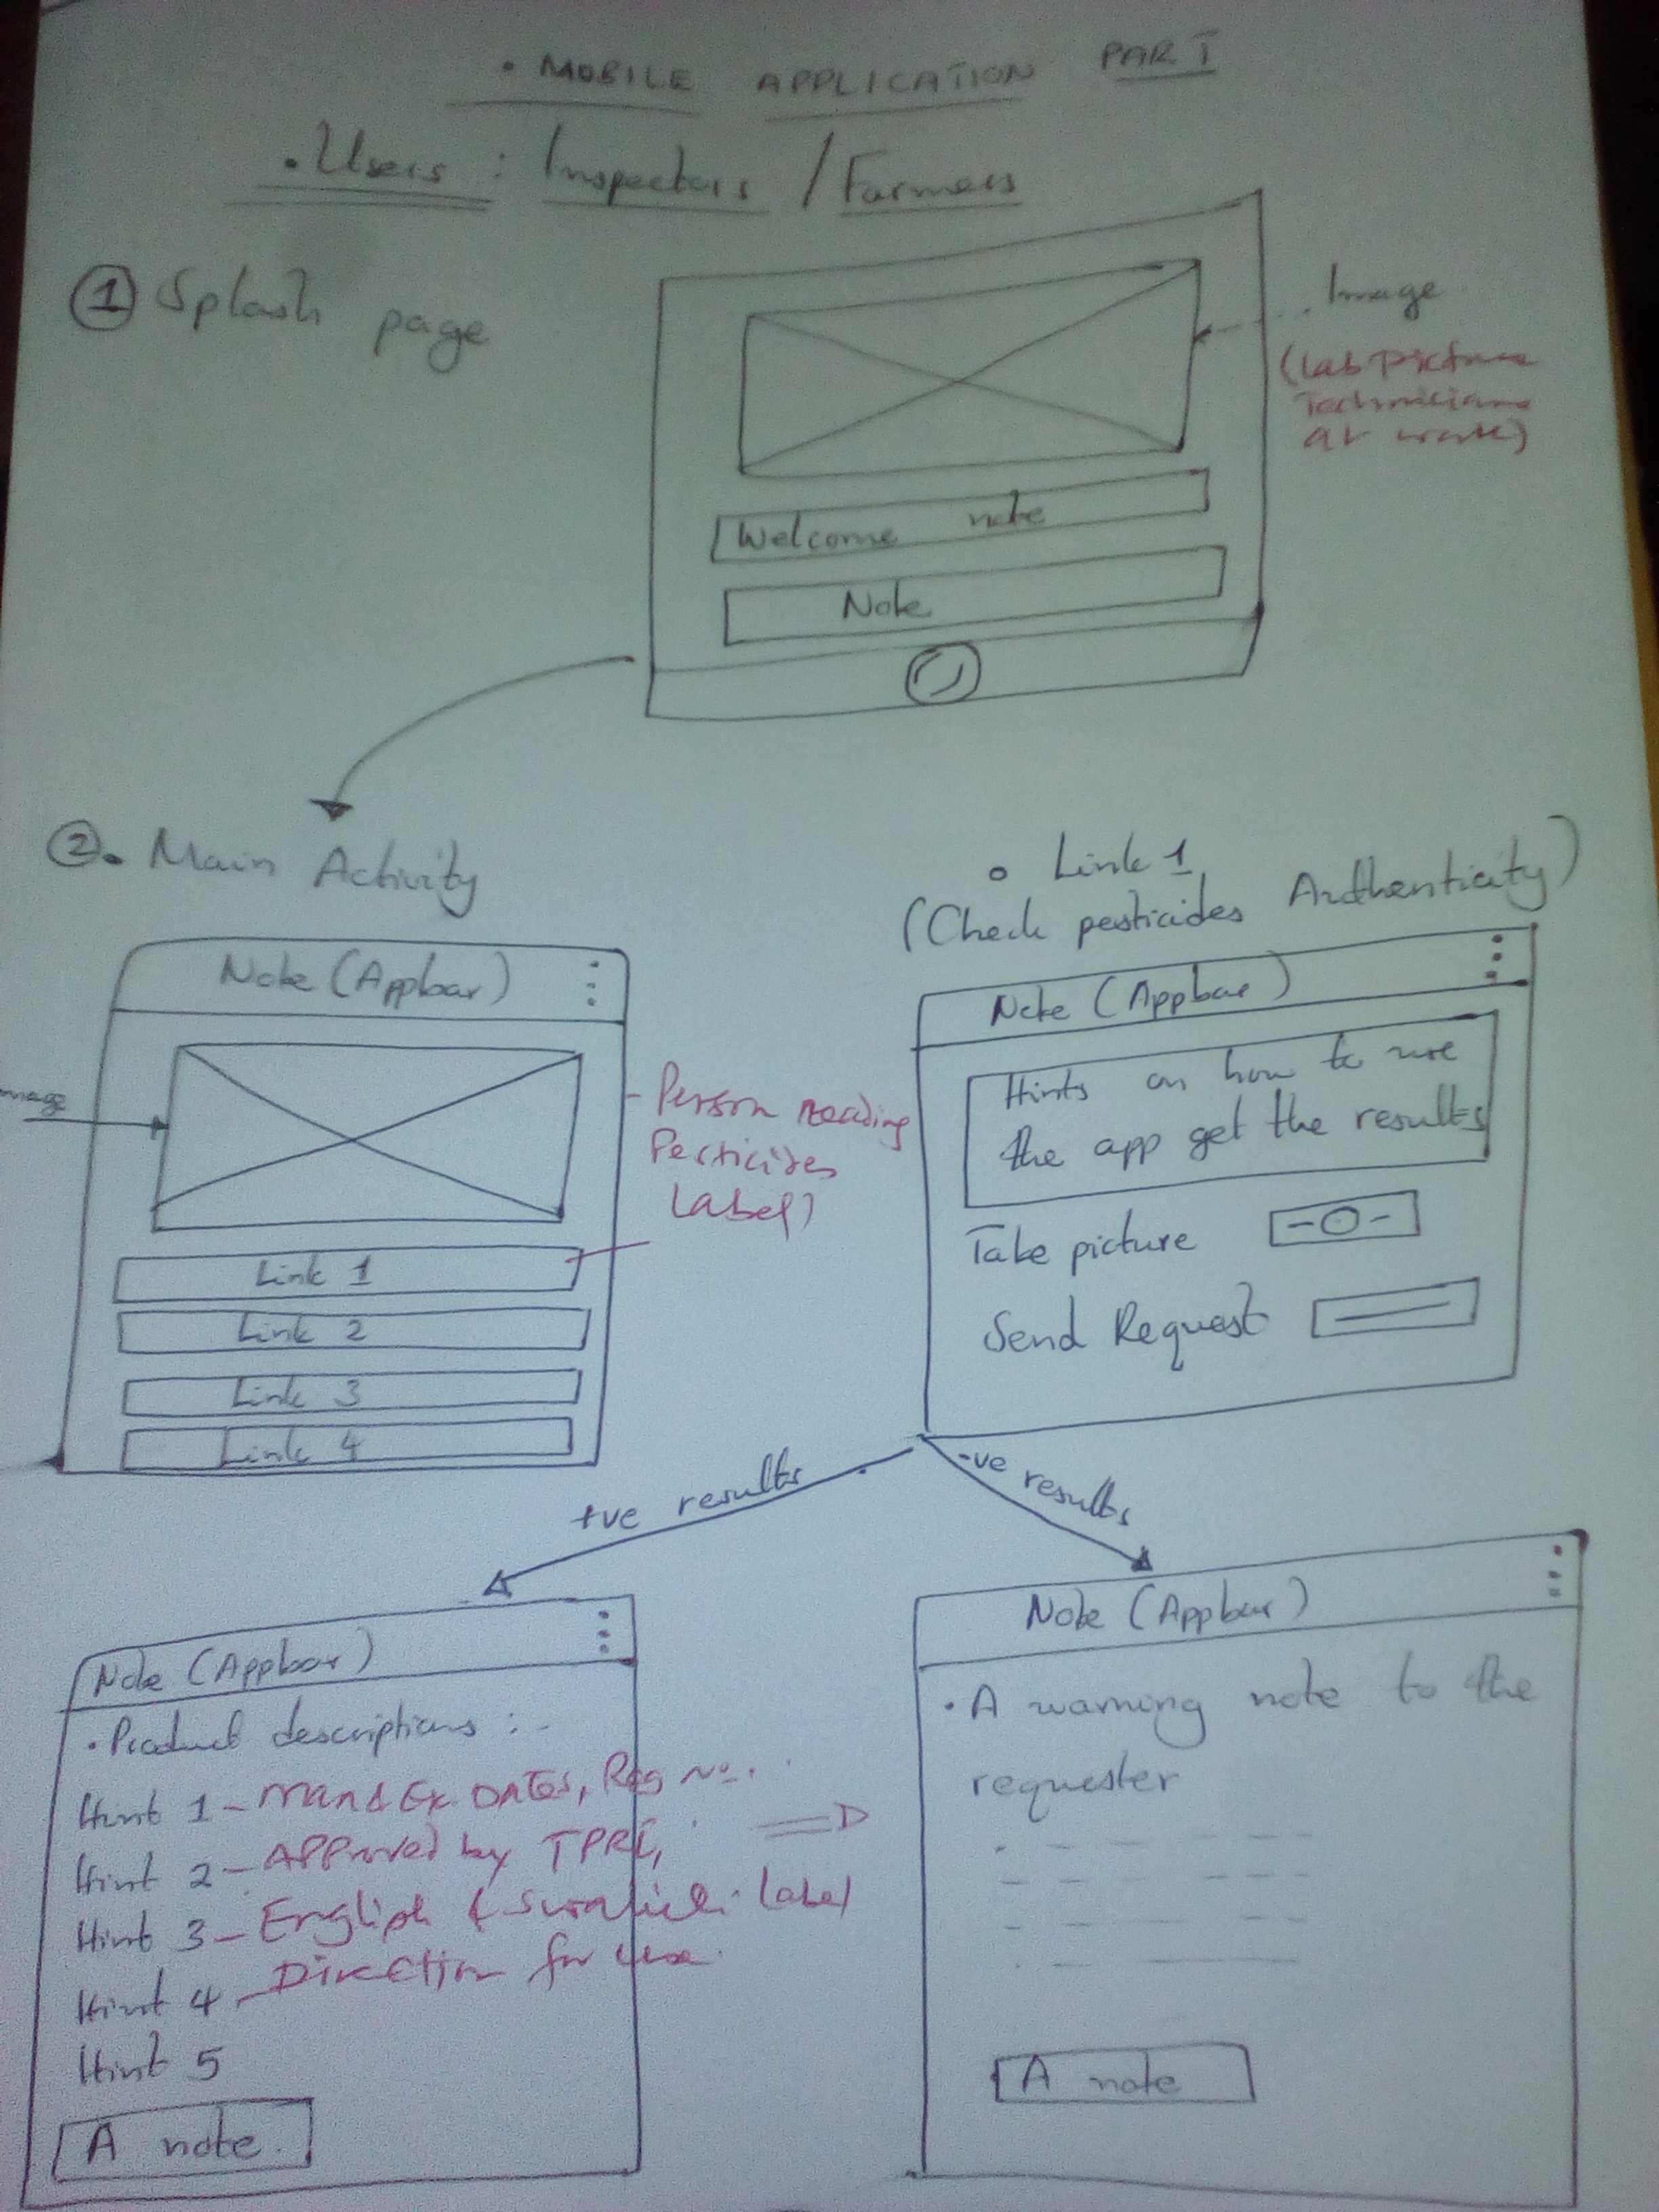 • MOBILE APPLICATION PART I
• Users : Inspectors / Farmers
① Splash page
Image
(Lab Picture
Technicians
at work)
Welcome note
Note
②. Main Activity
Note (Appbar)
Image
- Person reading
Pesticides
Label)
Link 1
Link 2
Link 3
Link 4
o Link 1
(Check pesticides Authenticity)
Note (Appbar)
Hints on how to use
the app get the results
Take picture
Send Request
+ve results
-ve results
Note (Appbar)
• Product descriptions :-
Hint 1 - Man & Ex. Dates, Reg No.
Hint 2 - Approved by TPRI,
Hint 3 - English & Swahili Label
Hint 4 - Direction for use.
Hint 5
A note.
Note (Appbar)
• A warning note to the
requester
A note